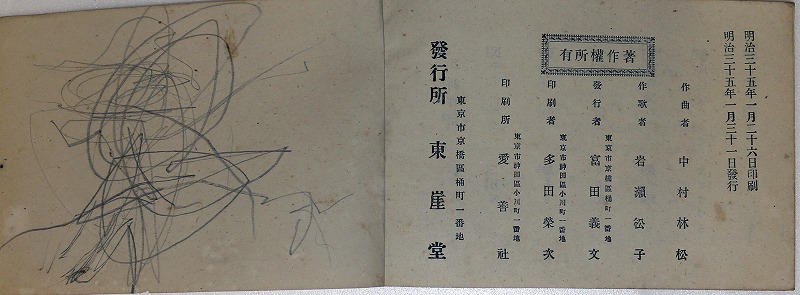 明治三十五年一月二十六日印刷
明治三十五年一月三十一日發行
著作權所有
作曲者 中村林松
作歌者 岩瀬㳂子
東京市京橋區桶町一番地
發行者 富田義文
東京市神田區小川町一番地
印刷者 多田榮次
東京市神田區小川町一番地
印刷所 愛善社
東京市京橋區桶町一番地
發行所 東崖堂